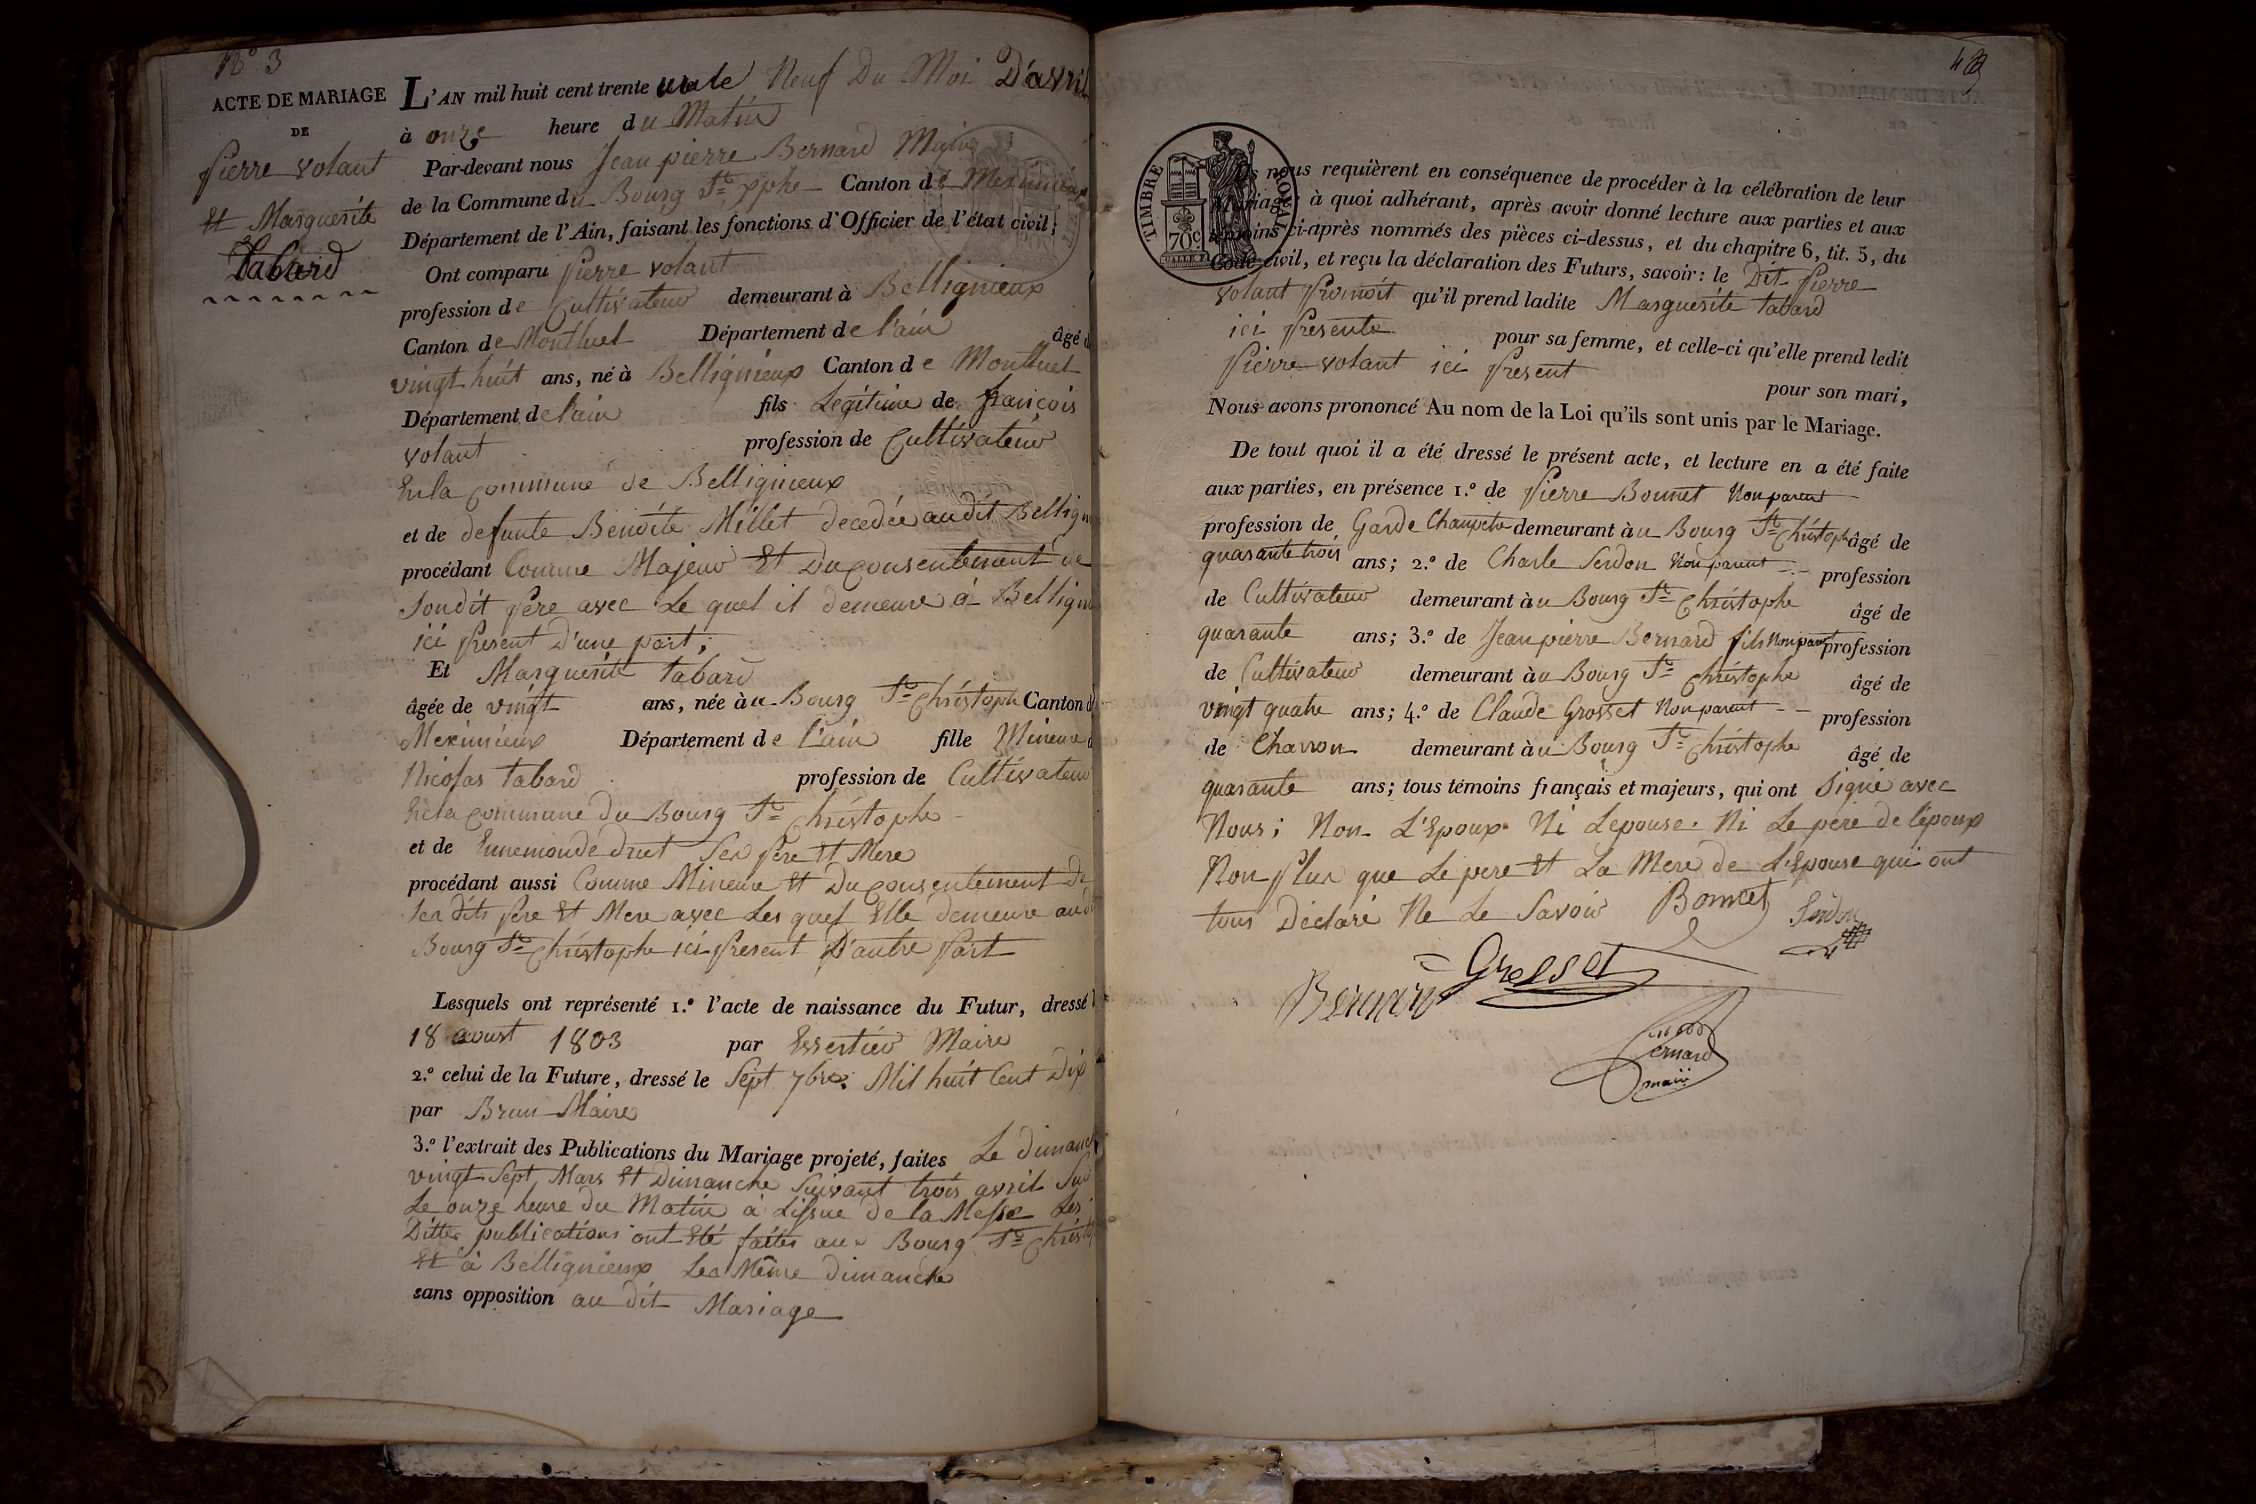 N.º 3
ACTE DE MARIAGE
DE
Pierre Volant
Et Marguerite
Tabard
L'AN mil huit cent trente un le Neuf Du Moi D'avril
à onze heure du Matin
Par-devant nous Jean pierre Bernard Maire
de la Commune du Bourg St. xphe Canton de Meximieux
Département de l'Ain, faisant les fonctions d'Officier de l'état civil;
Ont comparu Pierre volant
profession de Cultivateur demeurant à Bellignieux
Canton de Montluel Département de l'ain âgé d
vingt huit ans, né à Bellignieux Canton de Montluel
Département de l'ain fils Legitime de françois
volant profession de Cultivateur
En la commune de Bellignieux
et de defunte Benoite Millet decedée au dit Bellign
procédant Comme Majeur Et Du consentement de
Son dit Pere avec Le quel il demeure à Bellign
ici Present D'une part;
Et Marguerite tabard
âgée de vingt ans, née au Bourg St. Christophe Canton d
Meximieux Département de l'ain fille Mineure d
Nicolas tabard profession de Cultivateur
En la commune du Bourg St. Christophe
et de Ennemonde druet Ses Pere Et Mere
procédant aussi Comme Mineure Et Du consentement De
ses dits Pere Et Mere avec Les quel Elle demeure au d
Bourg St. Christophe ici Present D'autre Part
Lesquels ont représenté 1.º l'acte de naissance du Futur, dressé l
18 aoust 1803 par Essertier Maire
2.º celui de la Future, dressé le Sept 7bre Mil huit Cent Dix
par Brun Maire
3.º l'extrait des Publications du Mariage projeté, faites Le dimanch
vingt Sept Mars Et Dimanche Suivant trois avril Sur
Le onze heure du Matin à Lissue de la Messe Les
Dittes publications ont Eté faites au Bourg St. Christop
Et à Bellignieux Les Même dimanche
sans opposition au dit Mariage
TIMBRE ROYAL
70 c.
Ils nous requièrent en conséquence de procéder à la célébration de leur
Mariage; à quoi adhérant, après avoir donné lecture aux parties et aux
témoins ci-après nommés des pièces ci-dessus, et du chapitre 6, tit. 5, du
Code civil, et reçu la déclaration des Futurs, savoir: le Dit Pierre
volant qu'il prend ladite Marguerite tabard
ici Presente pour sa femme, et celle-ci qu'elle prend ledit
Pierre volant ici Present pour son mari,
Nous avons prononcé Au nom de la Loi qu'ils sont unis par le Mariage.
De tout quoi il a été dressé le présent acte, et lecture en a été faite
aux parties, en présence 1.º de Pierre Bonnet Non parent
profession de Garde Champetre demeurant au Bourg St. Christophe âgé de
quarante trois ans; 2.º de Charle Serdon Non parent profession
de Cultivateur demeurant au Bourg St. Christophe âgé de
quarante ans; 3.º de Jean pierre Bernard fils Non parent profession
de Cultivateur demeurant au Bourg St. Christophe âgé de
vingt quatre ans; 4.º de Claude Grosset Non parent profession
de Charron demeurant au Bourg St. Christophe âgé de
quarante ans; tous témoins français et majeurs, qui ont Signé avec
Nous; Non L'Epoux Ni Lepouse. Ni Le pere de l'epoux
Non Plus que Le pere Et La Mere de L'Epouse qui ont
tous Déclaré Ne Le Savoir Bonnet Serdon
Grosset
Bernard
Bernard
maire